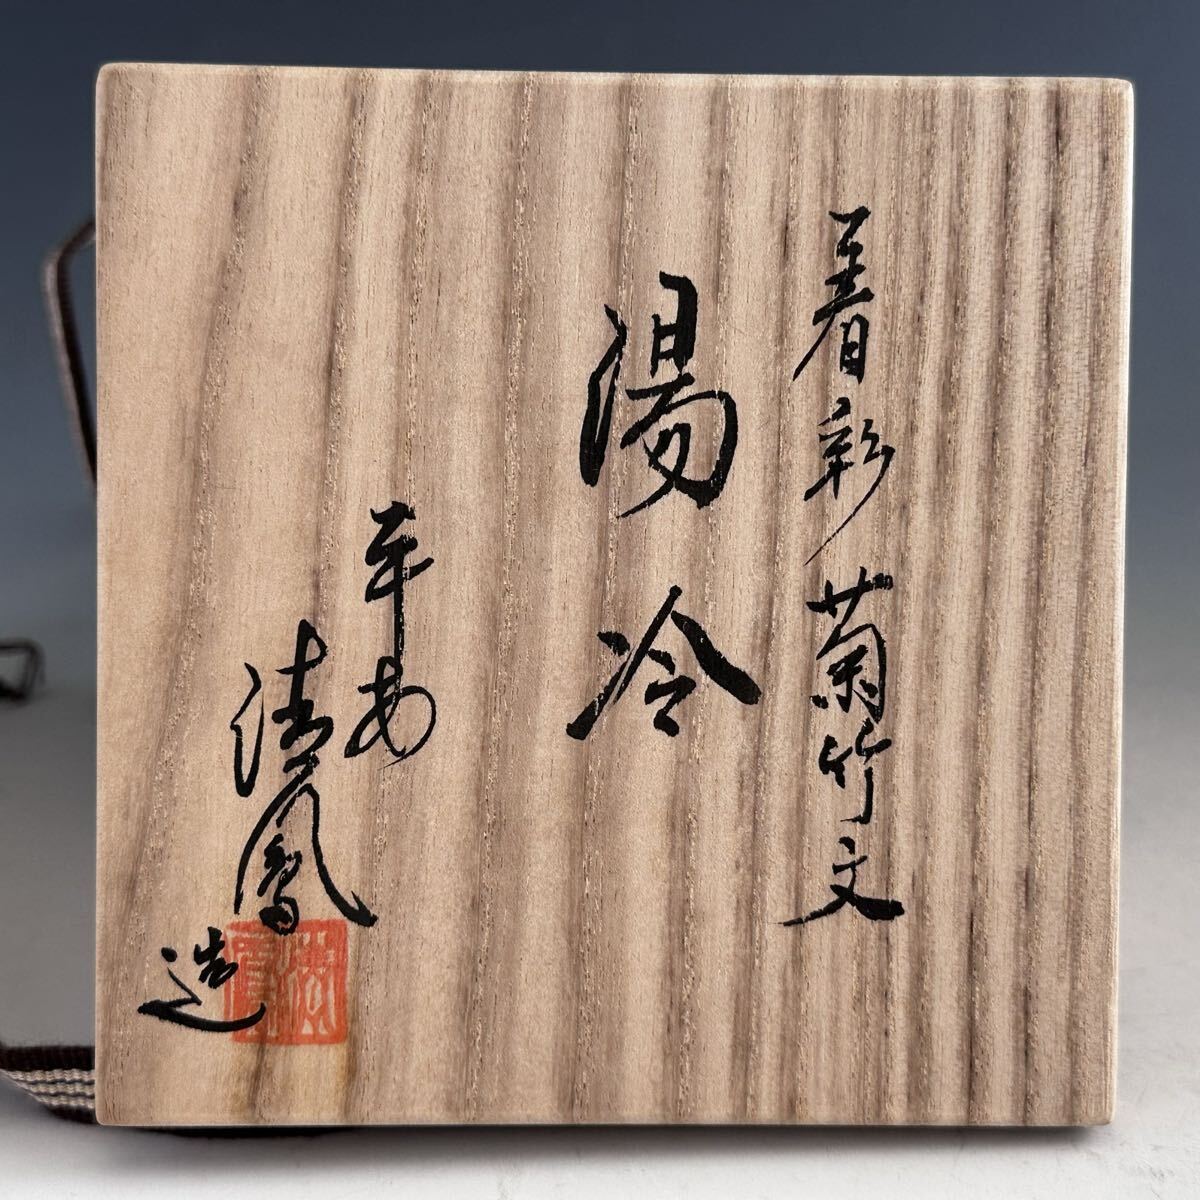 着彩菊竹文
湯冷
平安
清鳳
造